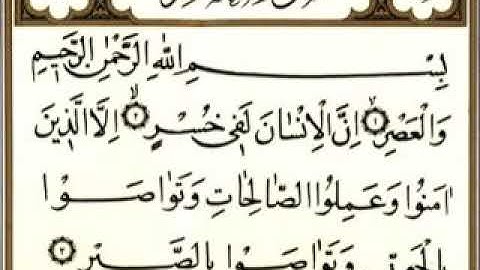 بِسْمِ اللّٰهِ الرَّحْمٰنِ الرَّح۪يمِ
وَالْعَصْرِۙ ﴿١﴾ اِنَّ الْاِنْسَانَ لَف۪ي خُسْرٍۙ ﴿٢﴾ اِلَّا الَّذ۪ينَ
اٰمَنُوا وَعَمِلُوا الصَّالِحَاتِ وَتَوَاصَوْا
بِالْحَقِّ وَتَوَاصَوْا بِالصَّبْرِ ﴿٣﴾